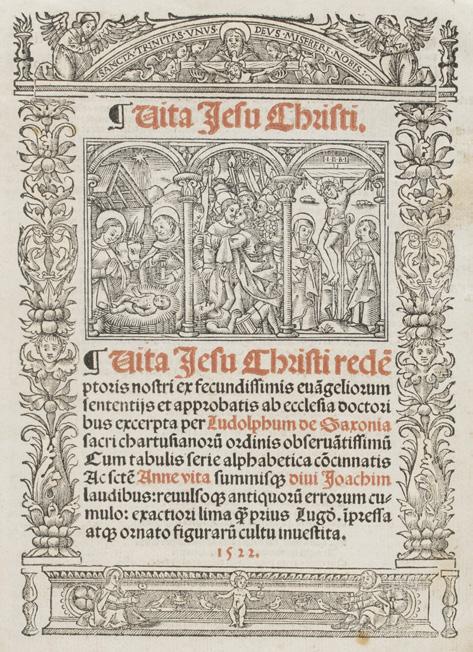 SANCTA·TRINITAS·VNVS DEVS·MISERERE·NOBIS·
¶ Uita Jesu Christi.
I·N·R·I
¶ Uita Jesu Christi redē
ptoris nostri ex fecundissimis euāgeliorum
sententijs et approbatis ab ecclesia doctori
bus excerpta per Ludolphum de Saxonia
sacri chartusianorū ordinis obseruātissimū
Cum tabulis serie alphabetica cōcinnatis
Ac sctē Anne vita summisqꝫ diui Joachim
laudibus: reuulsoqꝫ antiquorū errorum cu-
mulo: exactiori lima q̄ꝫ prius Lugð. īpressa
atqꝫ ornato figurarū cultu inuestita.
·1522.